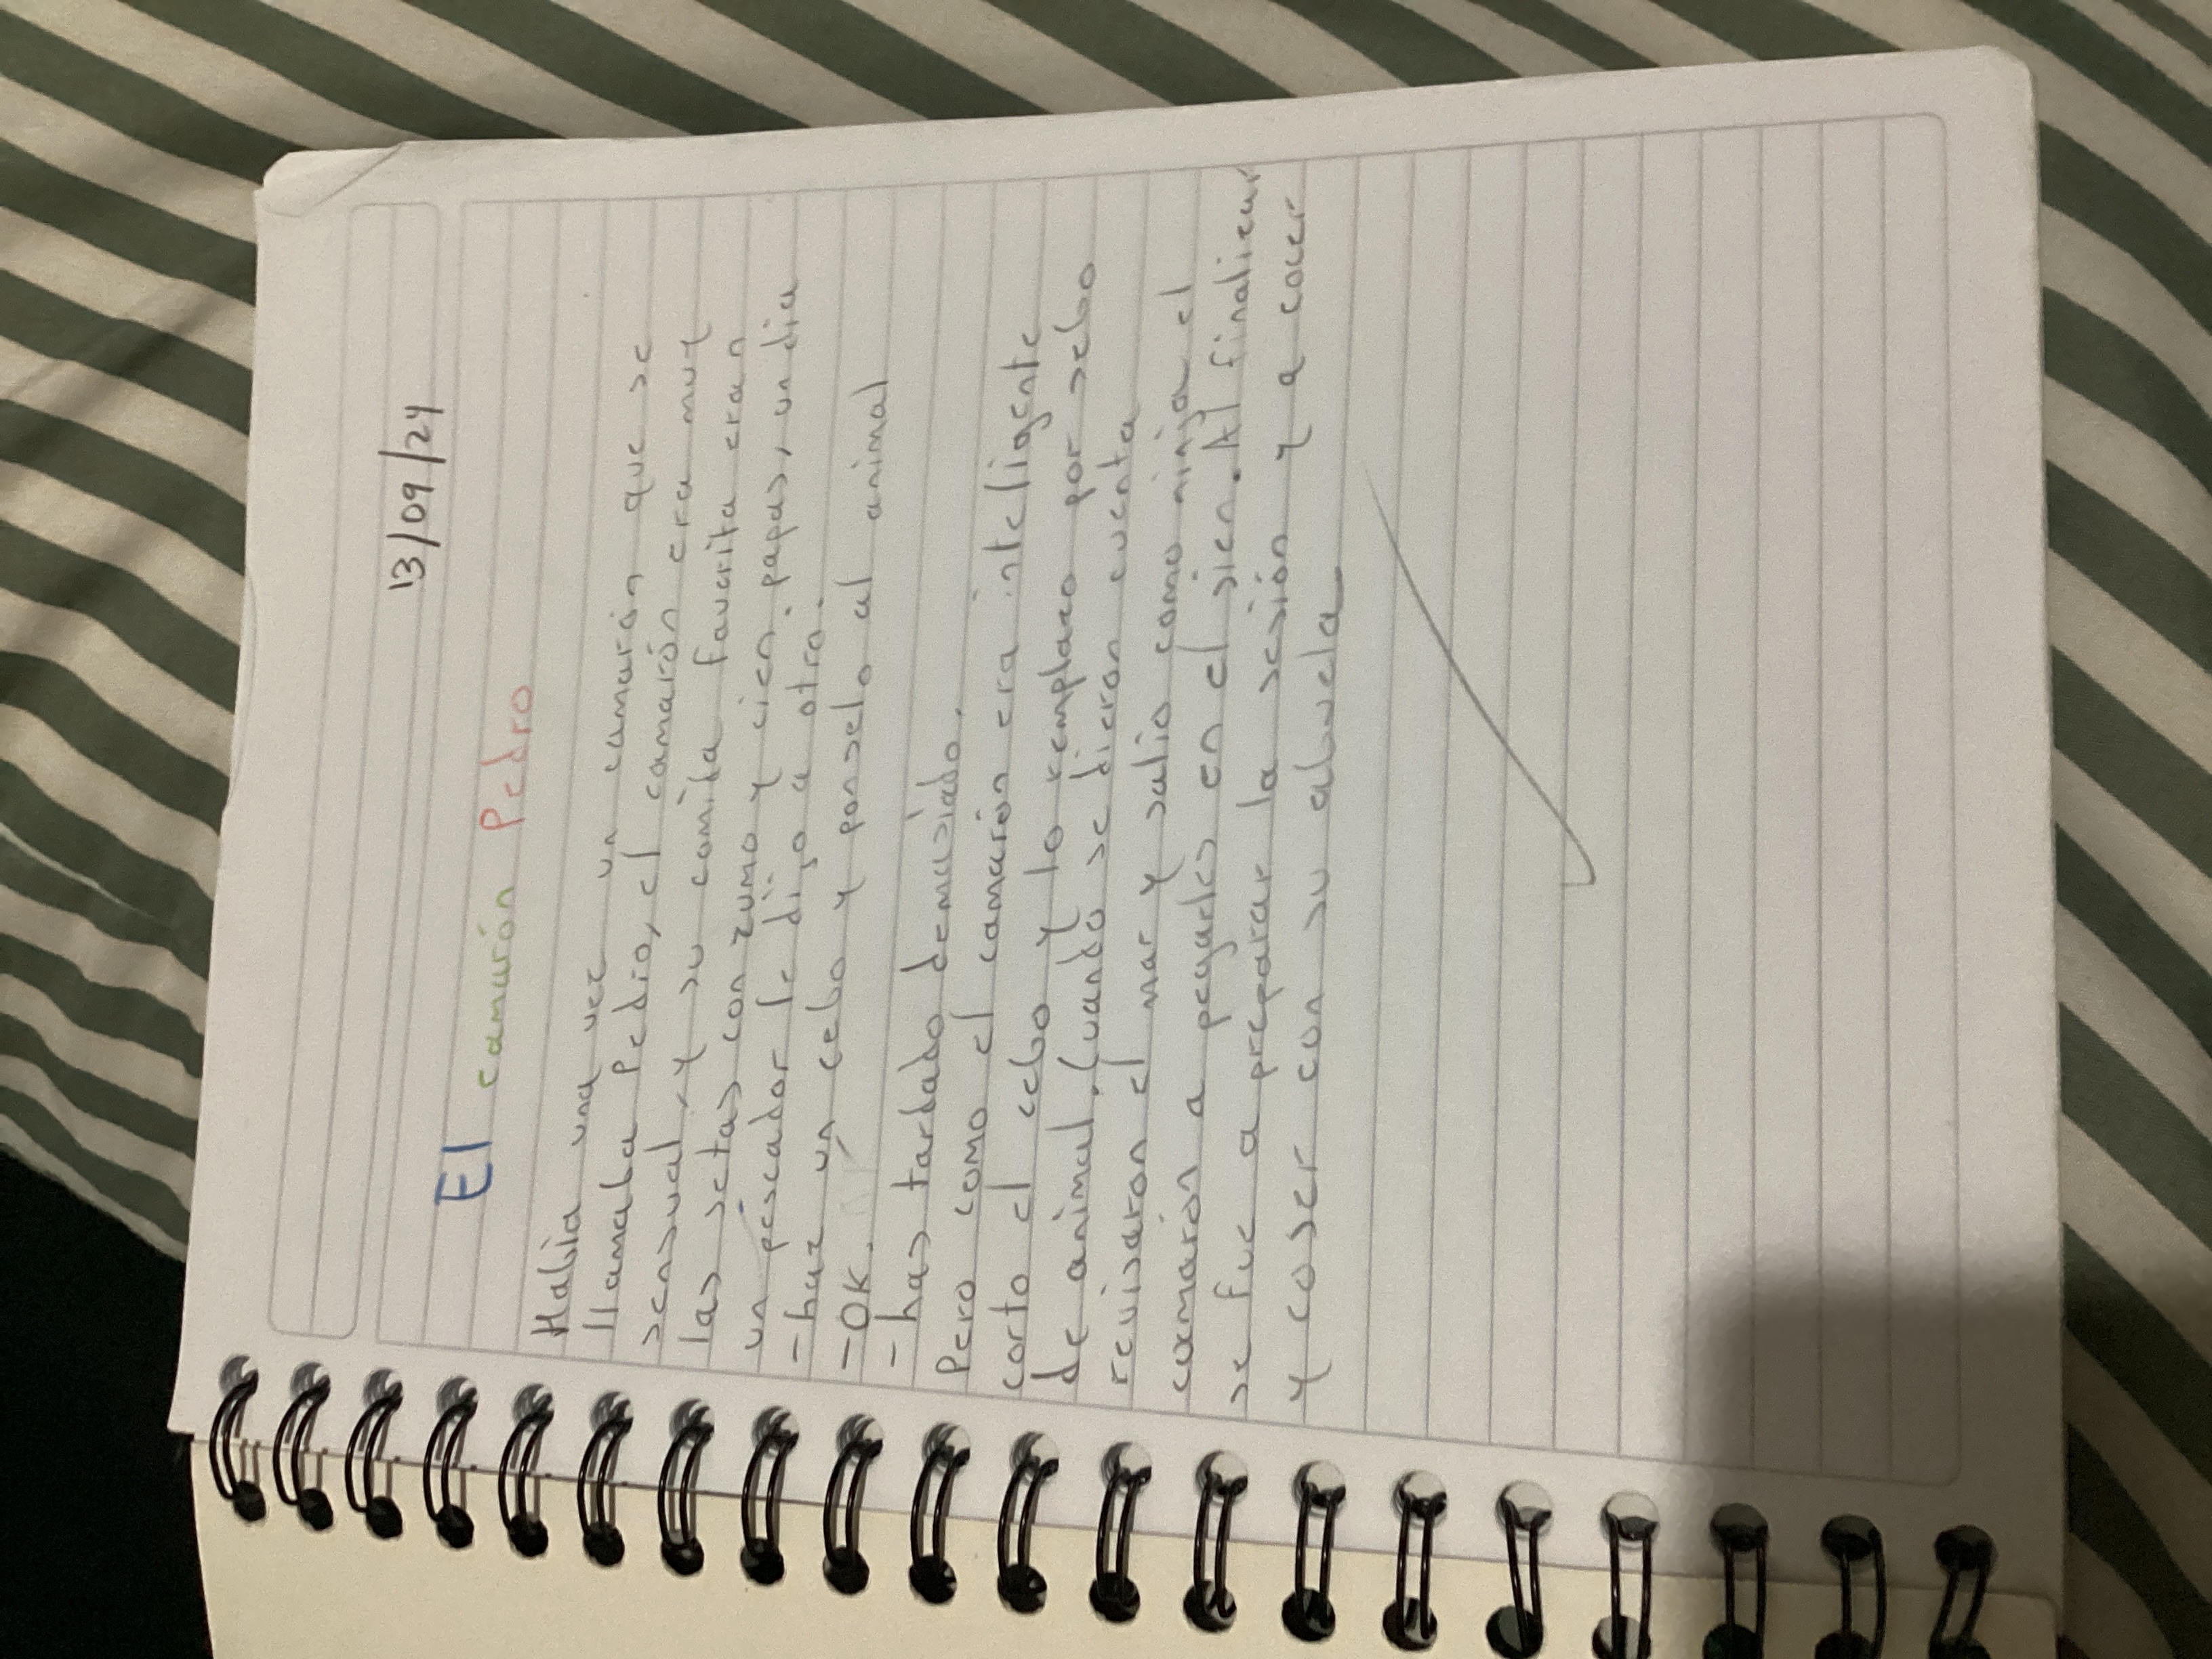 13/09/24
El camarón Pedro
Habia una vez un camarón que se
llamaba Pedro, el camarón era muy
sensual, y su comida favorita eran
las setas con zumo y cien papas, un dia
un pescador le dijo a otro:
-haz un cebo y ponselo al animal
-OK.
-has tardado demasiado.
Pero como el camarón era inteligente
corto el cebo y lo remplazo por sebo
de animal. Cuando se dieron cuenta
revisaron el mar y salio como ninja el
camarón a pegarles en el sien. Al finalizar
se fue a preparar la sesión y a cocer
y coser con su abuela